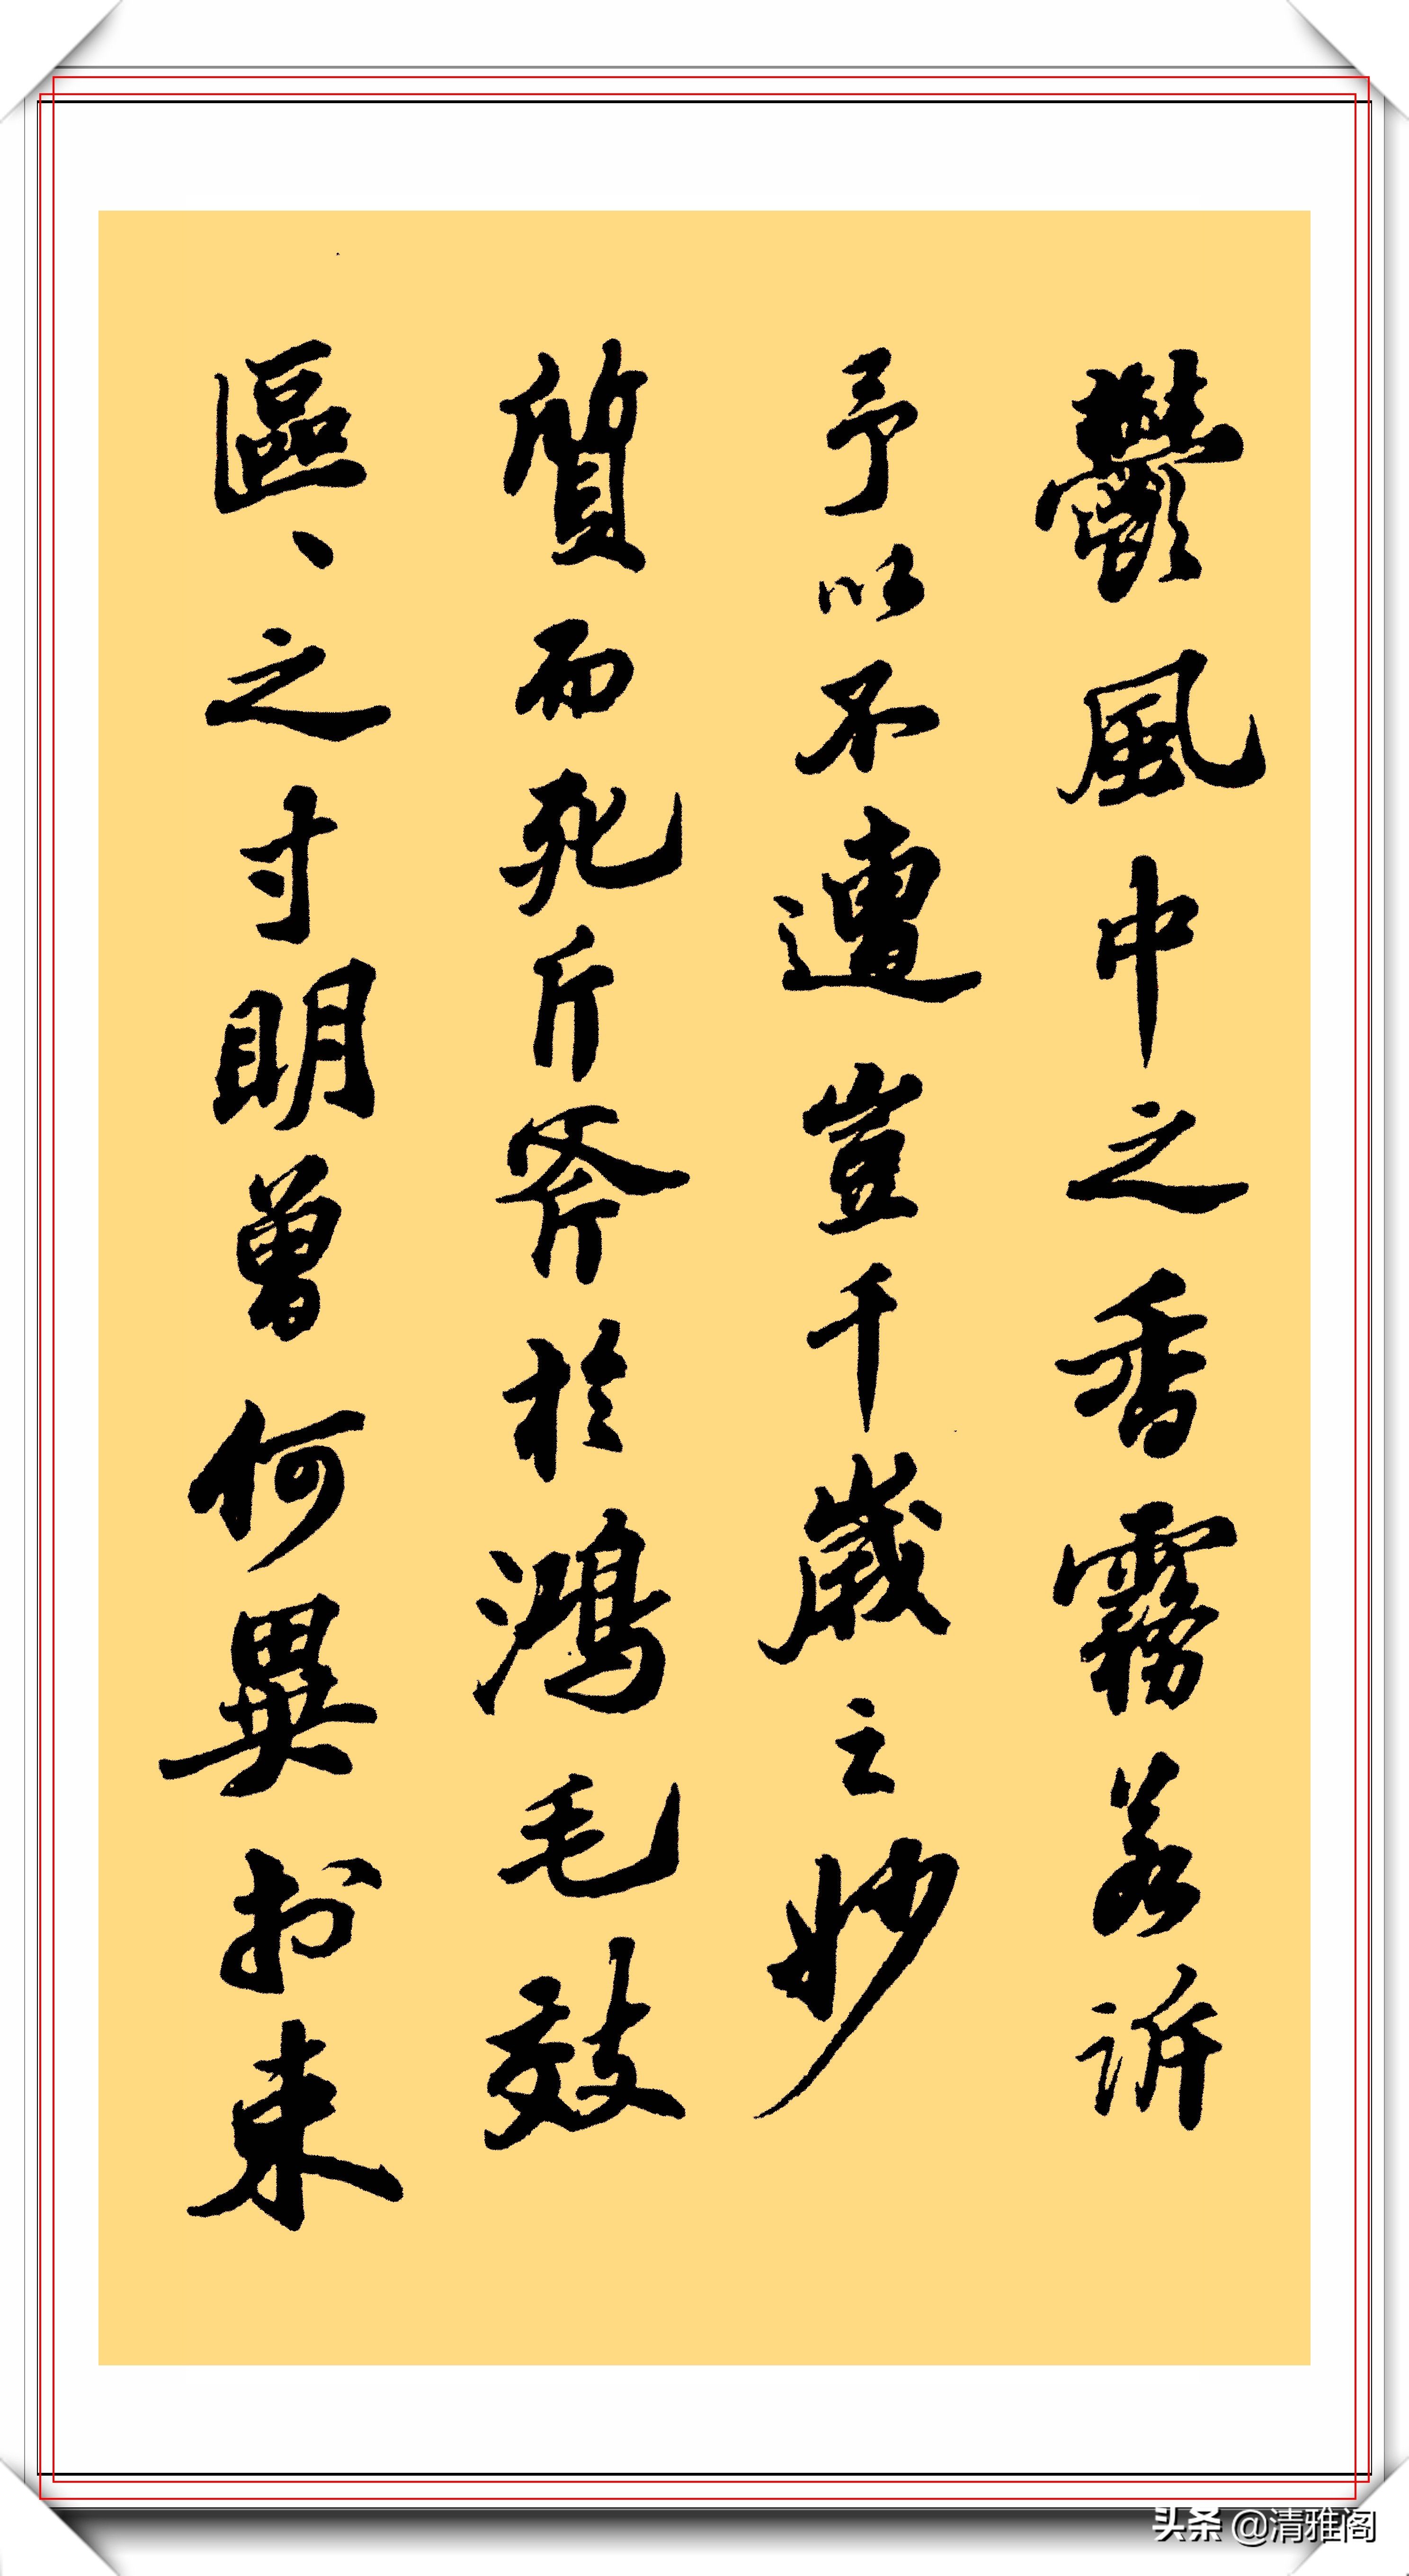 鬱風中之香霧若訴
予以不遭豈千歲之妙
質而死斤斧於鴻毛效
區、之寸明曾何異於束
头条 @清雅阁